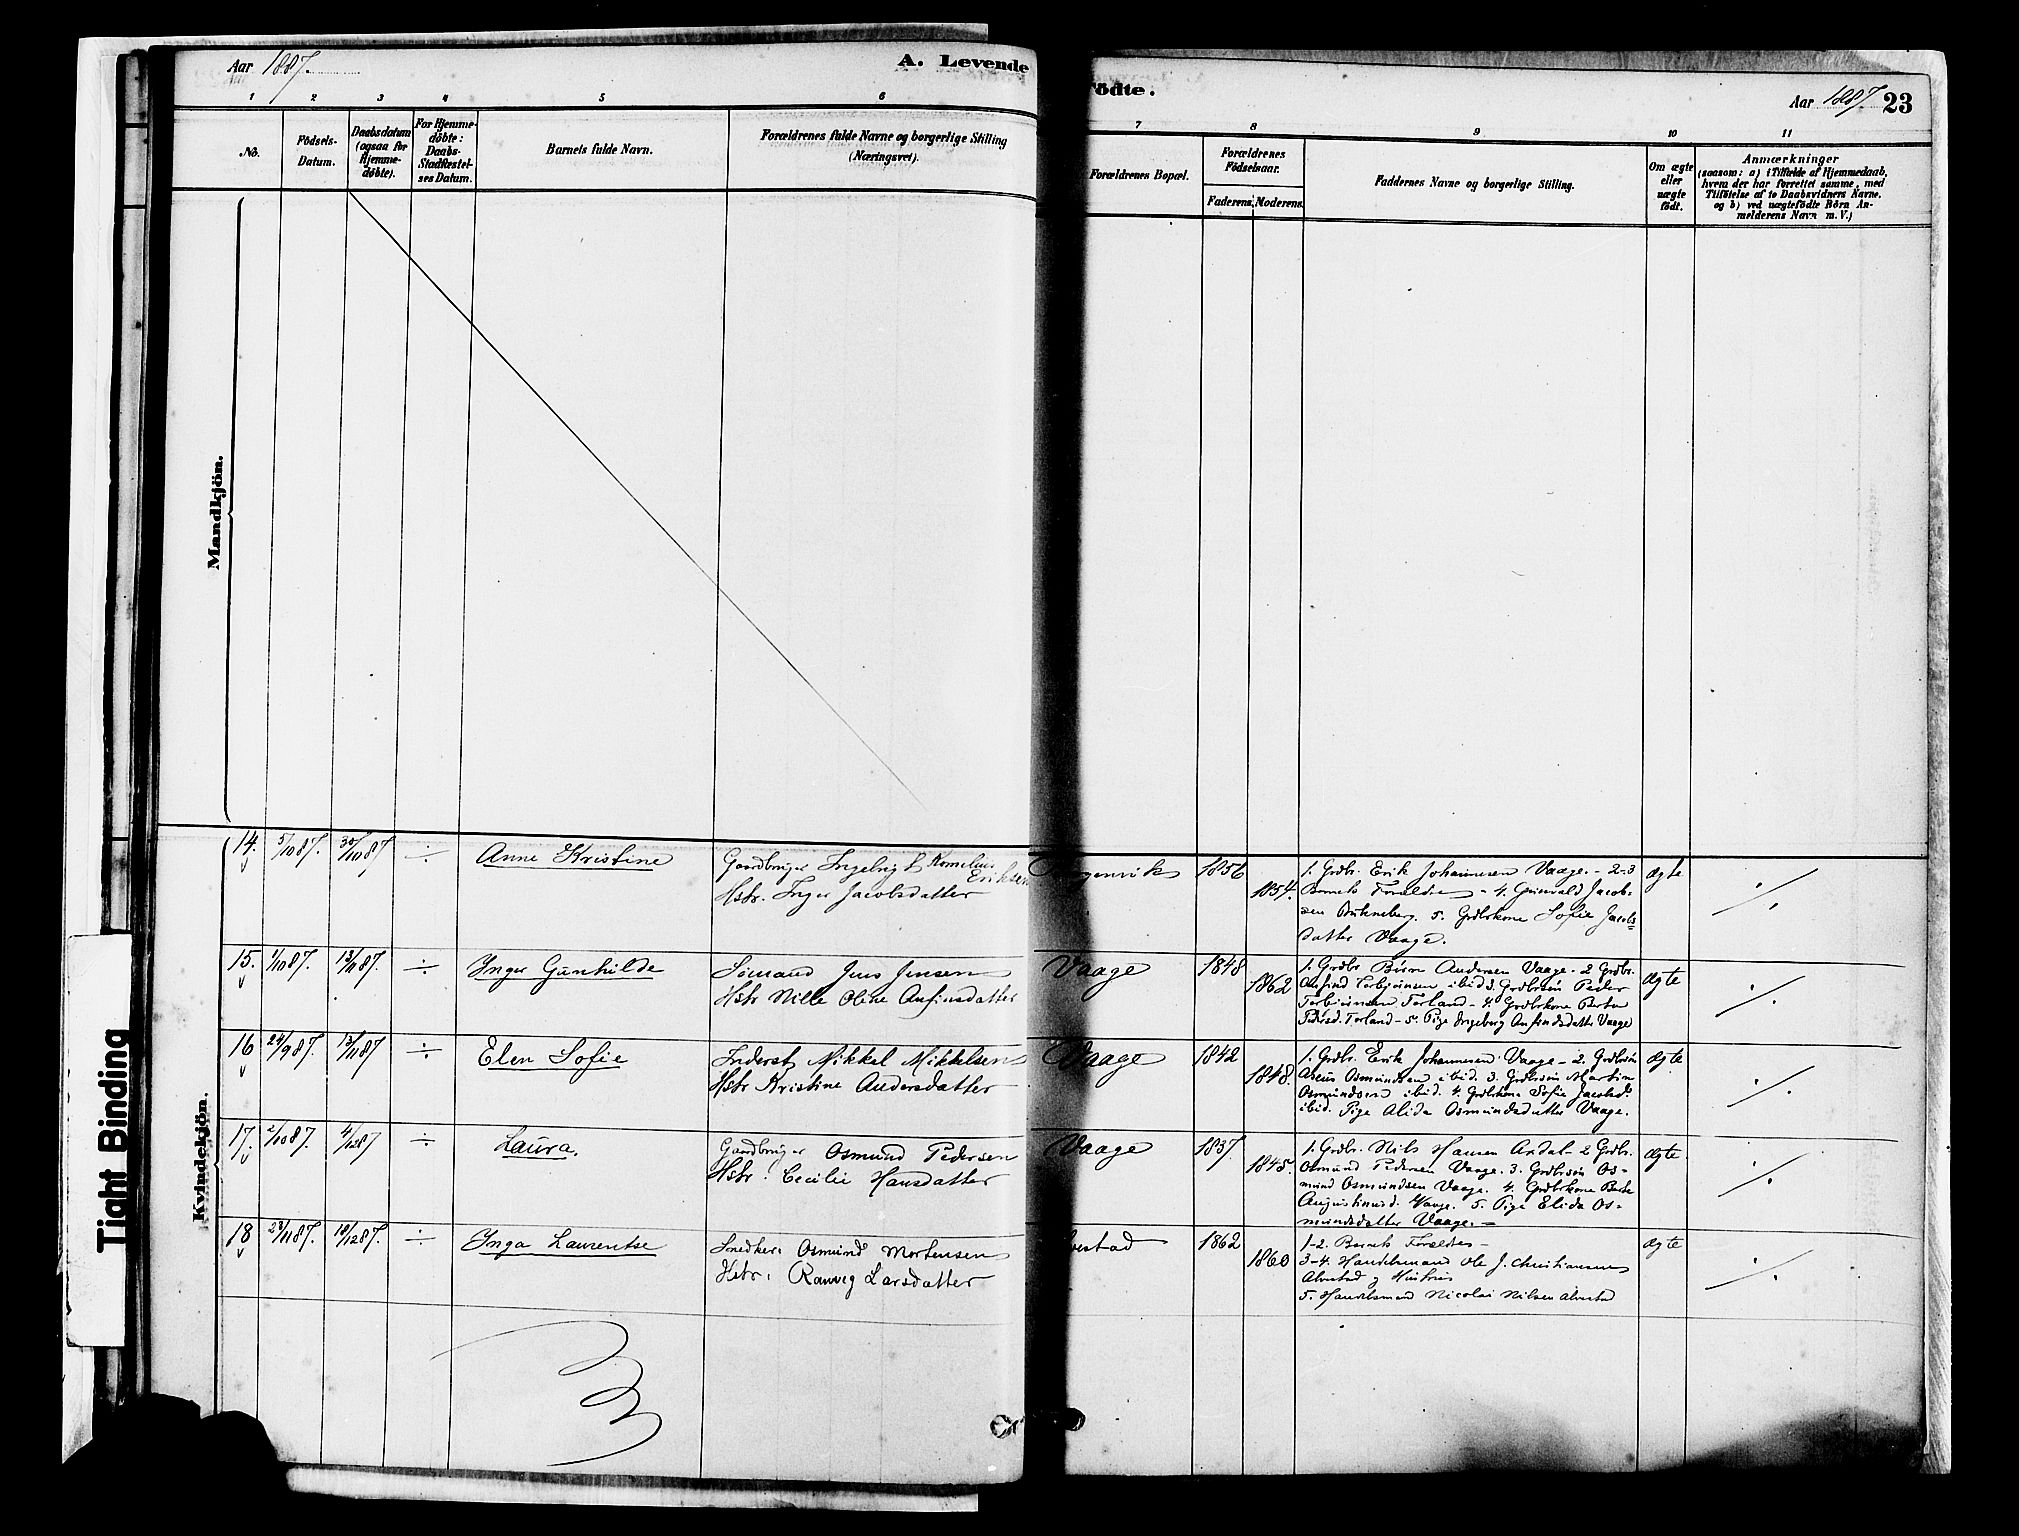 Aar 1887.
A. Levende
1 2 3 4 5 6
No.
Födsels-
Datum.
Daabsdatum
(ogsaa for
Hjemme-
döbte).
For Hjemme-
döbte:
Daabs-
Stadfæstel-
ses Datum.
Barnets fulde Navn.
Forældrenes fulde Navne og borgerlige Stilling
(Næringsvei).
Mandkjön.
Kvindekjön.
14. 5/10 87. 30/10 87 ÷ Anne Kristine
Gaardbruger Ingebrigt Kornelius
Eriksen
Hstr. Inger Jacobsdatter
15. 1/10 87. 13/11 87. ÷ Inger Gunhilde
Sømand Jens Jensen
Hstr Nille Oline Anfinsdatter
16 24/9 87. 13/11 87 ÷ Elen Sofie
Inderst Mikkel Mikkelsen
Hstr Kristine Andersdatter
17. 2/10 87. 4/12 87 ÷ Laura.
Gaardbruger Osmund Pedersen
Hstr. Cecilie Hansdatter
18 23/11 87. 18/12 87. ÷ Inga Laurentse
Snedker Osmund Mortensen
Hstr. Ranveg Larsdatter
Tight Binding
födte.
Aar 1887. 23
7 8 9 10 11
Forældrenes Bopæl.
Forældrenes
Födselsaar.
Faderens. Moderens.
Faddernes Navne og borgerlige Stilling.
Om ægte
eller
uægte
födt.
Anmærkninger
(saasom: a) i Tilfælde af Hjemmedaab,
hvem der har forrettet samme, med
Tilföielse af to Daabsvidners Navne.
og b) ved uægtefödte Börn An-
melderens Navn m. V.)
1856 1854.
1. Grdbr. Erik Johannesen Vaage. - 2-3
Barnets Forældre - 4. Grunvald Jacob-
sen 5. Grdbrkone Sofie Jacobs
datter Vaage.
ægte ./.
Vaage 1848 1862
1. Grdbr Andersen Vaage. 2 Grdbr.
Anfind Torbjørnsen ibid 3. Grdbrsøn Peder
Torbjørnsen Torland - 4. Grdbrkone Berta
Pedersd. Torland - 5. Pige Ingeborg Anfindsdatter Vaage
ægte ./.
Vaage 1842 1848.
1. Grdbr. Erik Johannesen Vaage - 2. Grdbrsøn
Osmundsen ibid. 3. Grdbrsøn Martin
Osmundsen ibid. 4. Grdbrkone Sofie Jacobsd.
ibid. Pige Alida Osmundsdatter Vaage.
ægte ./.
Vaage 1837. 1845.
1. Grdbr. Nils Hansen Ardal - 2 Grdbr.
Osmund Pedersen Vaage. 3. Grdbrsøn Os-
mund Osmundsen Vaage. 4. Grdbrkone Berte
Vaage. 5. Pige Elida Os-
mundsdatter Vaage. -
ægte ./.
1862 1860
1-2. Barnets Forældre -
3-4. Handelsmand Ole J. Christiansen
Alvestad og Hustru
5. Handelsmand Nicolai Nilsen Alvestad
ægte ./.